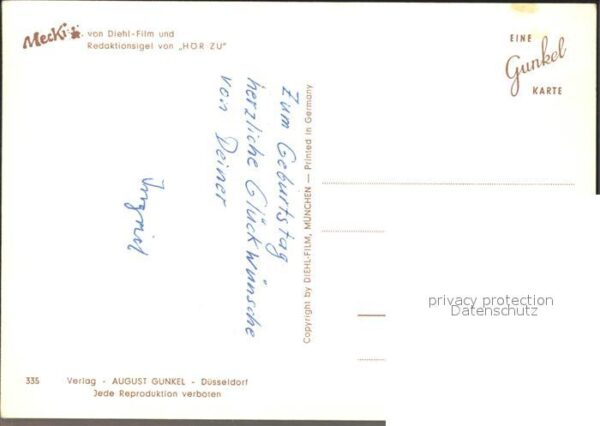 Mecki
von Diehl-Film und
Redaktionsigel von „HÖR ZU"
EINE
Gunkel
KARTE
Zum Geburtstag
herzliche Glückwünsche
von Deiner
Ingrid
Copyright by DIEHL-FILM, MÜNCHEN — Printed in Germany
privacy protection
Datenschutz
335 Verlag - AUGUST GUNKEL - Düsseldorf
Jede Reproduktion verboten